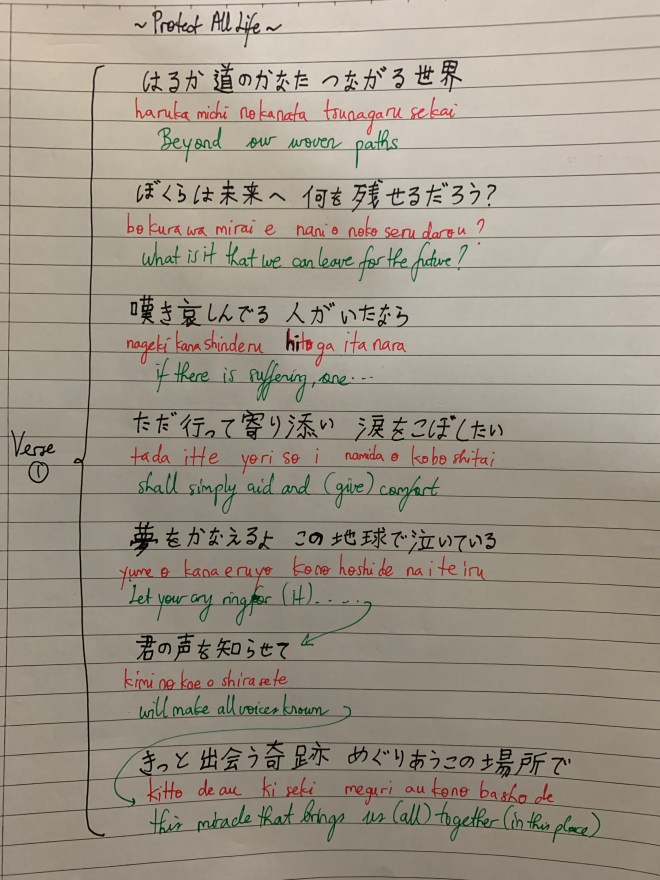 ~Protect All Life~
はるか 道のかなた つながる世界
haruka michi no kanata tsunagaru sekai
Beyond our woven paths
ぼくらは未来へ 何を残せるだろう?
bokura wa mirai e nani o noko seru darou ?
what is it that we can leave for the future?
嘆き哀しんでる 人がいたなら
nageki kana shinderu hito ga ita nara
if there is suffering, one...
ただ行って寄り添い 涙をこぼしたい
tada itte yori so i namida o kobo shitai
shall simply aid and (give) comfort
Verse
①
夢をかなえるよ この地球で泣いている
yume o kana eruyo kono hoshi de na i te iru
Let your cry ring for (it) ......
君の声を知らせて
kimi no koe o shirasete
will make all voices known
きっと出会う奇跡 めぐりあうこの場所で
kitto de au ki seki meguri au kono basho de
this miracle that brings us (all) together (in this place)